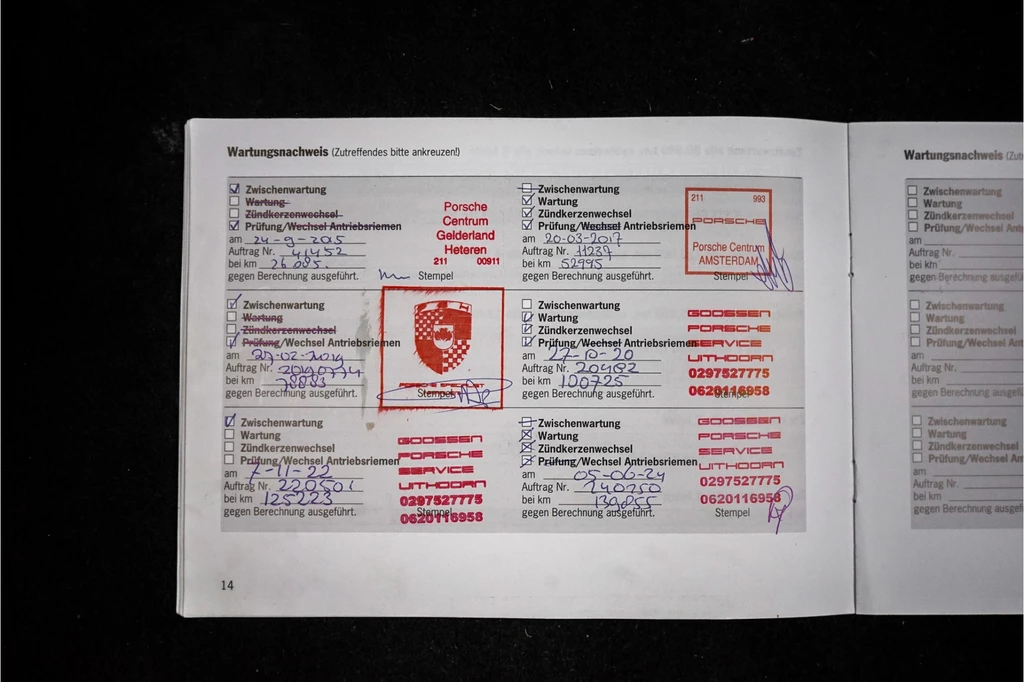 Wartungsnachweis (Zutreffendes bitte ankreuzen!)
Zwischenwartung
Wartung
Zündkerzenwechsel
Prüfung/Wechsel Antriebsriemen
am 24-9-2015
Auftrag Nr. 41452
bei km 26.085.
gegen Berechnung ausgeführt.
Porsche
Centrum
Gelderland
Heteren
211 00911
Stempel
Zwischenwartung
Wartung
Zündkerzenwechsel
Prüfung/Wechsel Antriebsriemen
am 20-03-2017
Auftrag Nr. 11237
bei km 52995
gegen Berechnung ausgeführt.
211 993
PORSCHE
Porsche Centrum
AMSTERDAM
Stempel
Zwischenwartung
Wartung
Zündkerzenwechsel
Prüfung/Wechsel Antriebsriemen
am 27-02-2019
Auftrag Nr. 20190774
bei km 78883
gegen Berechnung ausgeführt.
Stempel
Zwischenwartung
Wartung
Zündkerzenwechsel
Prüfung/Wechsel Antriebsriemen
am 27-10-20
Auftrag Nr. 20482
bei km 100725
gegen Berechnung ausgeführt.
GOOSSEN
PORSCHE
SERVICE
UITHOORN
0297527775
0620116958
Stempel
Zwischenwartung
Wartung
Zündkerzenwechsel
Prüfung/Wechsel Antriebsriemen
am 7-11-22
Auftrag Nr. 220501
bei km 125223
gegen Berechnung ausgeführt.
GOOSSEN
PORSCHE
SERVICE
UITHOORN
0297527775
0620116958
Stempel
Zwischenwartung
Wartung
Zündkerzenwechsel
Prüfung/Wechsel Antriebsriemen
am 05-06-24
Auftrag Nr. 240250
bei km 139855
gegen Berechnung ausgeführt.
GOOSSEN
PORSCHE
SERVICE
UITHOORN
0297527775
0620116958
Stempel
14
Wartungsnachweis (Zut
Zwischenwartung
Wartung
Zündkerzenwechsel
Prüfung/Wechsel Ant
am
Auftrag Nr.
bei km
gegen Berechnung ausgefüh
Zwischenwartung
Wartung
Zündkerzenwechsel
Prüfung/Wechsel Ant
am
Auftrag Nr.
bei km
gegen Berechnung ausgefü
Zwischenwartung
Wartung
Zündkerzenwechsel
Prüfung/Wechsel An
am
Auftrag Nr.
bei km
gegen Berechnung ausgef